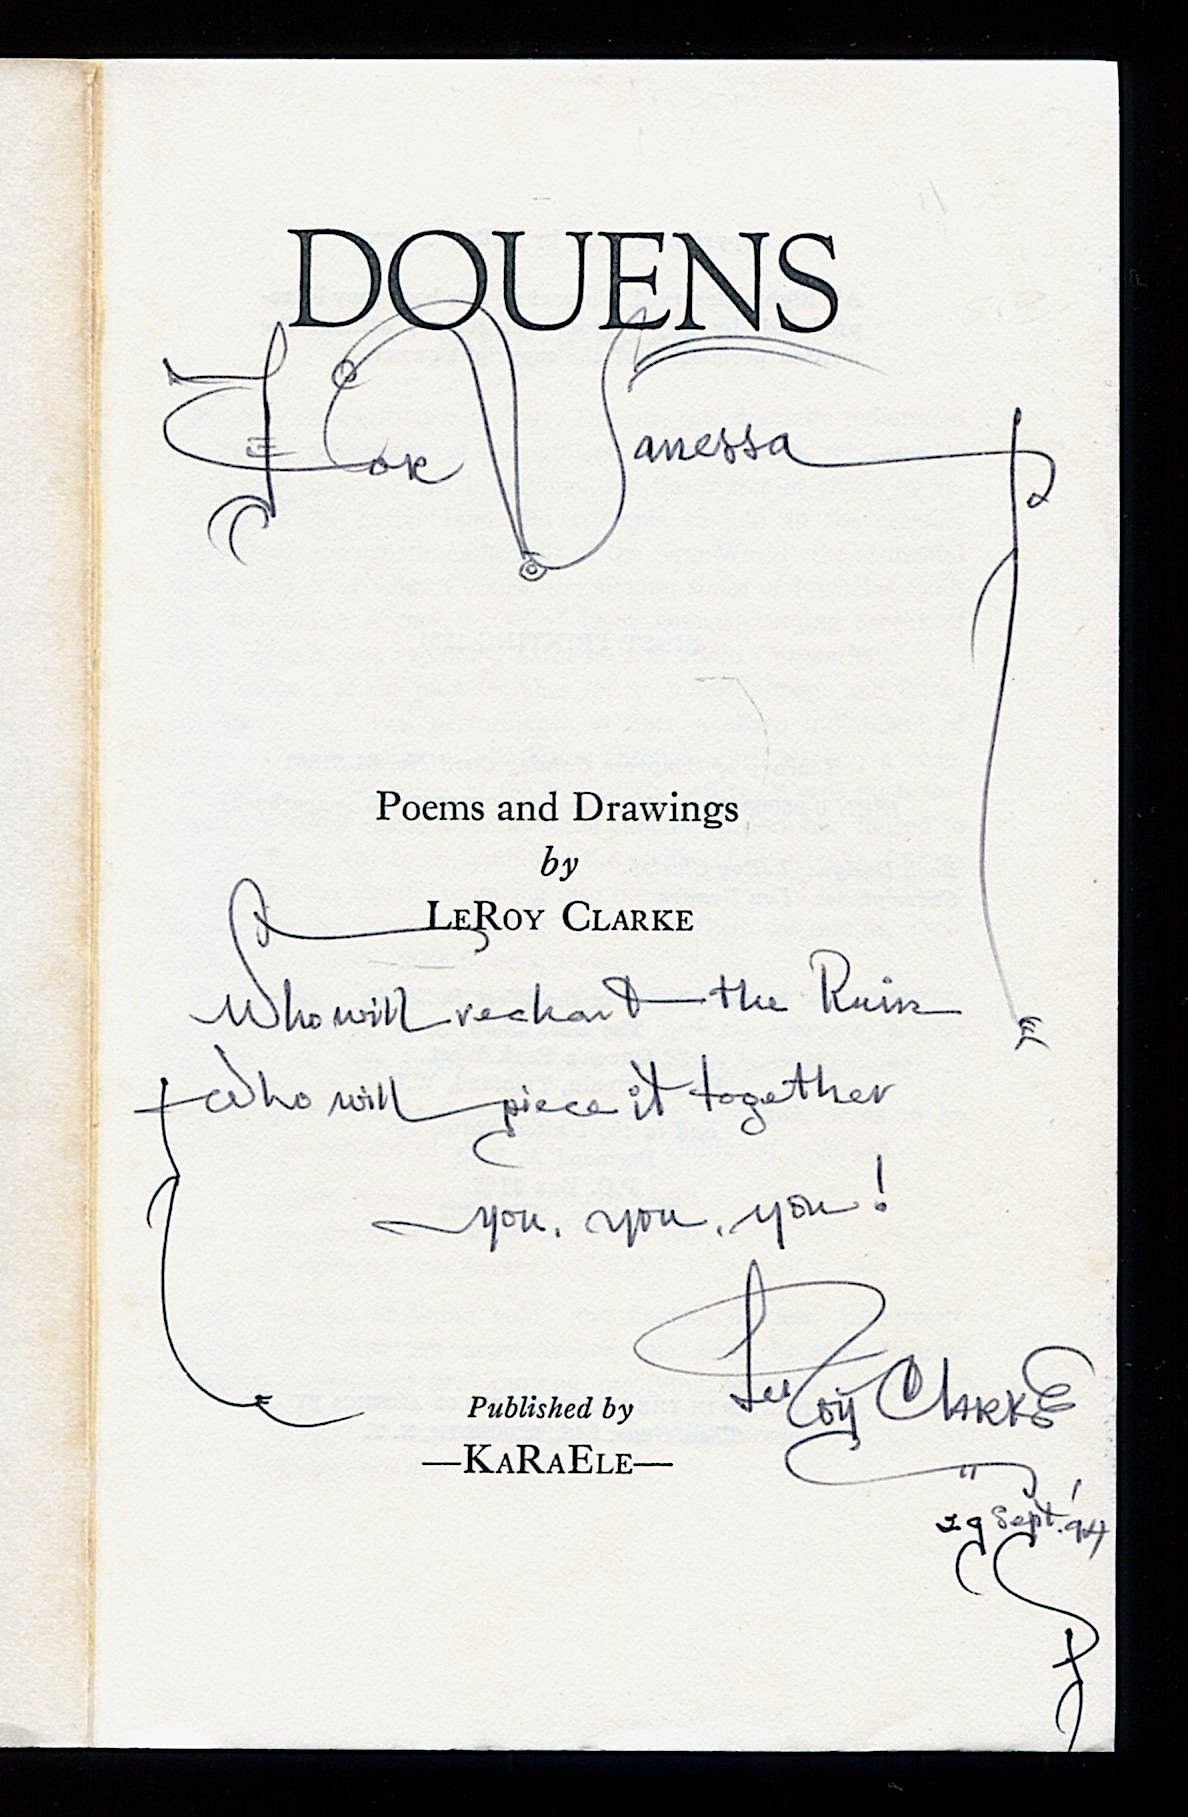 DOUENS
For Vanessa
Poems and Drawings
by
LEROY CLARKE
Who will the Ruin
Who will piece it together
you, you, you!
LeRoy Clarke
Published by
—KARAELE—
29 Sept. '94